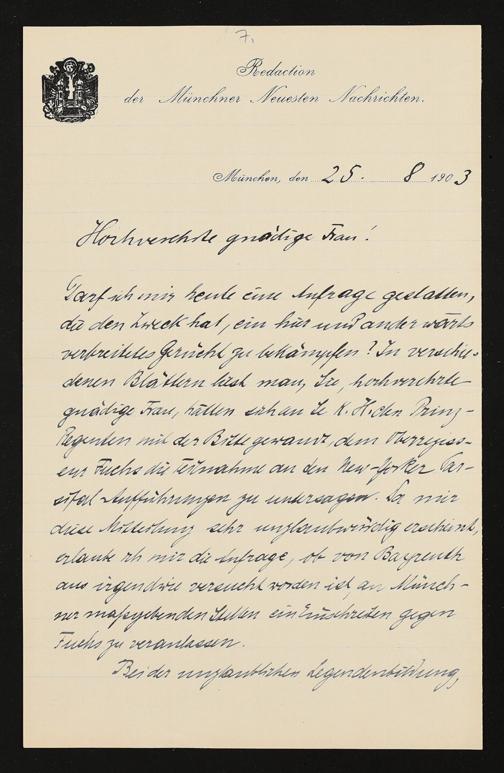 7.
Redaction
der Münchner Neuesten Nachrichten.
München, den 25. 8 1903
Hochverehrte gnädige Frau!
Darf ich mir heute eine Anfrage gestatten,
die den Zweck hat, ein hier und anderwärts
verbreitetes Gerücht zu bekämpfen? In verschie-
denen Blättern liest man, Sie, hochverehrte
gnädige Frau, hätten sich an Se K. H. den Prinz-
Regenten mit der Bitte gewandt, dem Oberregiss-
eur Fuchs die Teilnahme an den New-Yorker Par-
sifal-Aufführungen zu untersagen. Da mir
diese Mitteilung sehr unglaubwürdig erscheint,
erlaube ich mir die Anfrage, ob von Bayreuth
aus irgendwie versucht worden ist, an Münch-
ner maßgebenden Stellen ein Einschreiten gegen
Fuchs zu veranlassen.
Bei der unglaublichen Legendenbildung,